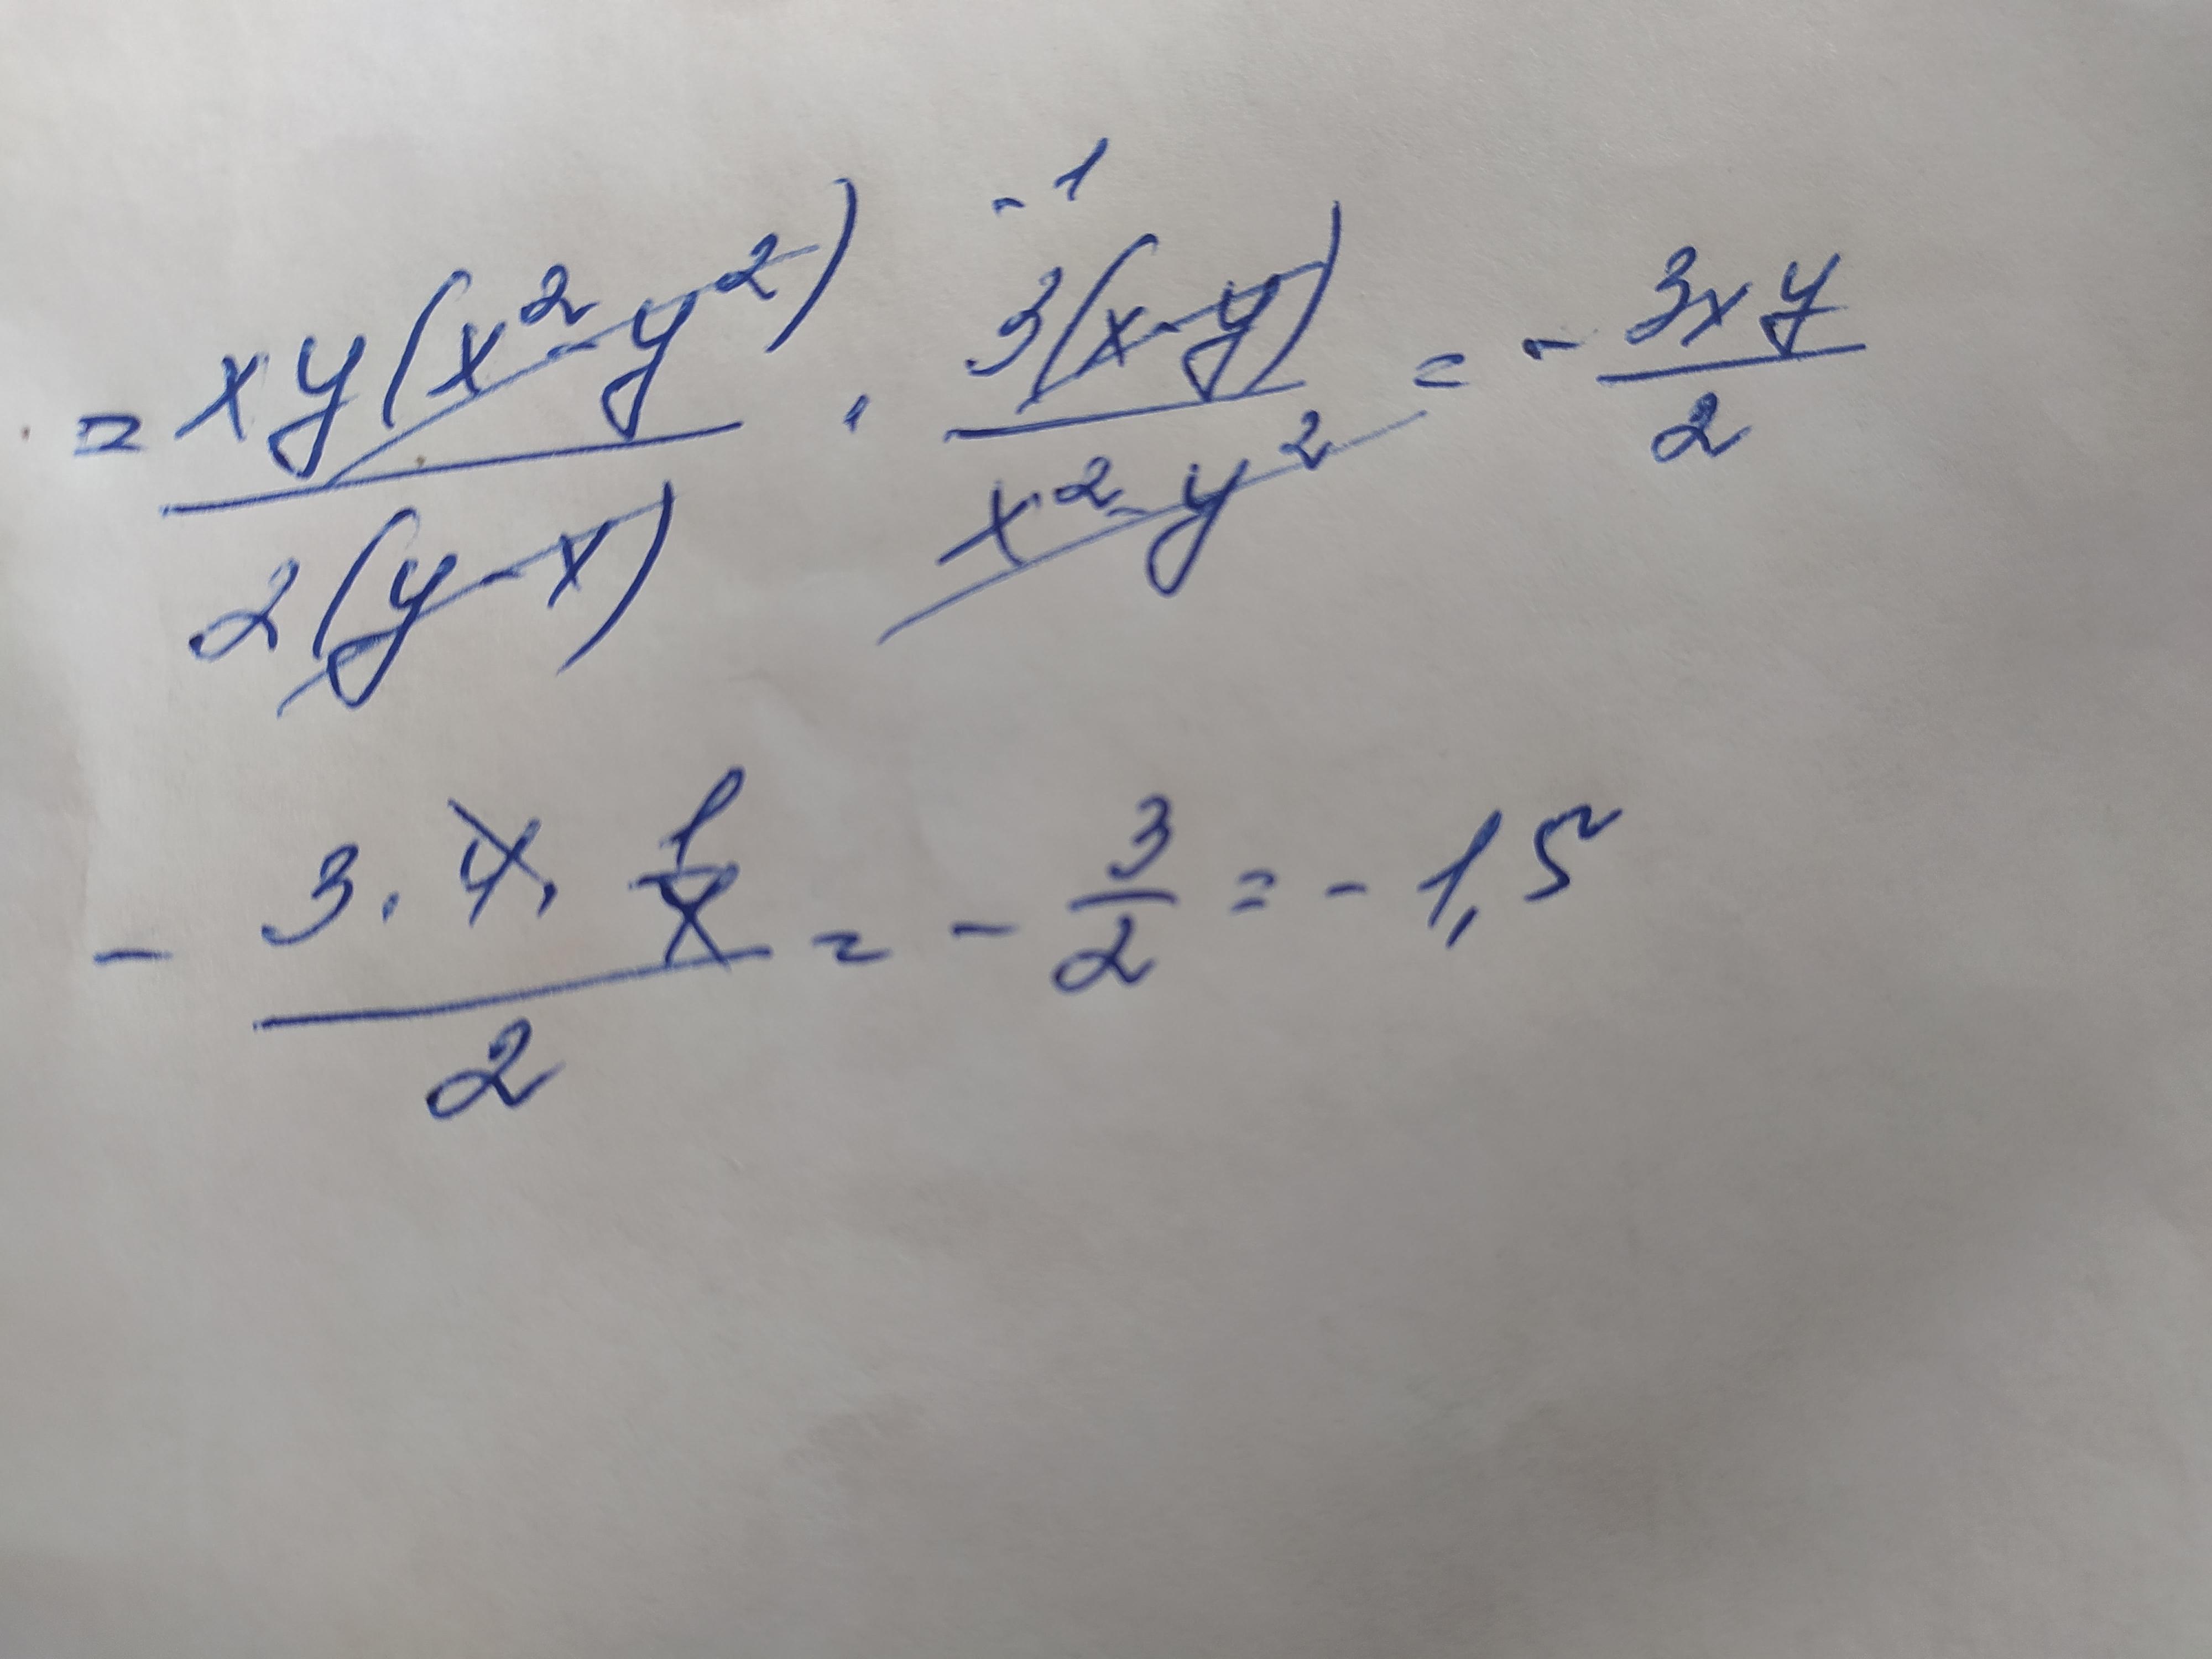 = xy(x²-y²)/2(y-x) · -1 3(x-y)/x²-y² = - 3xy/2
- 3·4·1/4/2 = - 3/2 = - 1,5